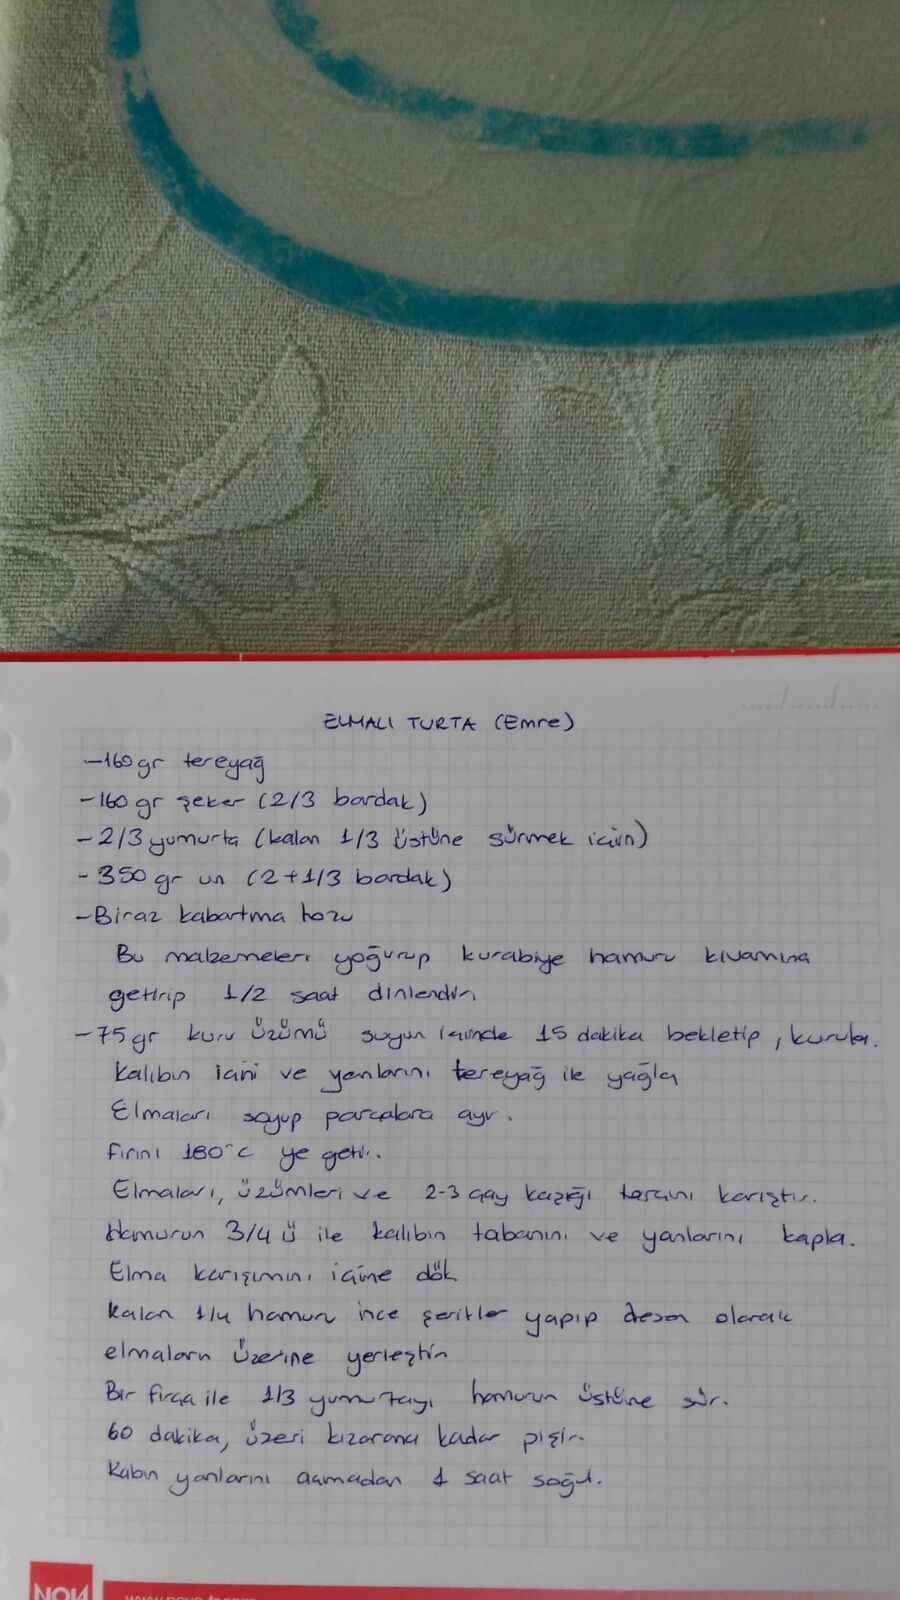 ELMALI TURTA (Emre)
-160gr tereyağ
-160 gr şeker (2/3 bardak)
-2/3 yumurta (kalan 1/3 üstüne sürmek için)
-350 gr un (2+1/3 bardak)
-Biraz kabartma tozu
Bu malzemeleri yoğurup kurabiye hamuru kıvamına
getirip 1/2 saat dinlendir.
-75gr kuru üzümü suyun içinde 15 dakika bekletip, kurula.
Kalıbın içini ve yanlarını tereyağ ile yağla
Elmaları soyup parçalara ayır.
Fırını 180°C ye getir.
Elmaları, üzümleri ve 2-3 çay kaşığı tarçını karıştır.
Hamurun 3/4 ü ile kalıbın tabanını ve yanlarını kapla.
Elma karışımını içine dök.
Kalan 1/4 hamuru ince şeritler yapıp desen olarak
elmaların üzerine yerleştir.
Bir fırça ile 1/3 yumurtayı hamurun üstüne sür.
60 dakika, üzeri kızarana kadar pişir.
Kabın yanlarını açmadan 1 saat soğut.